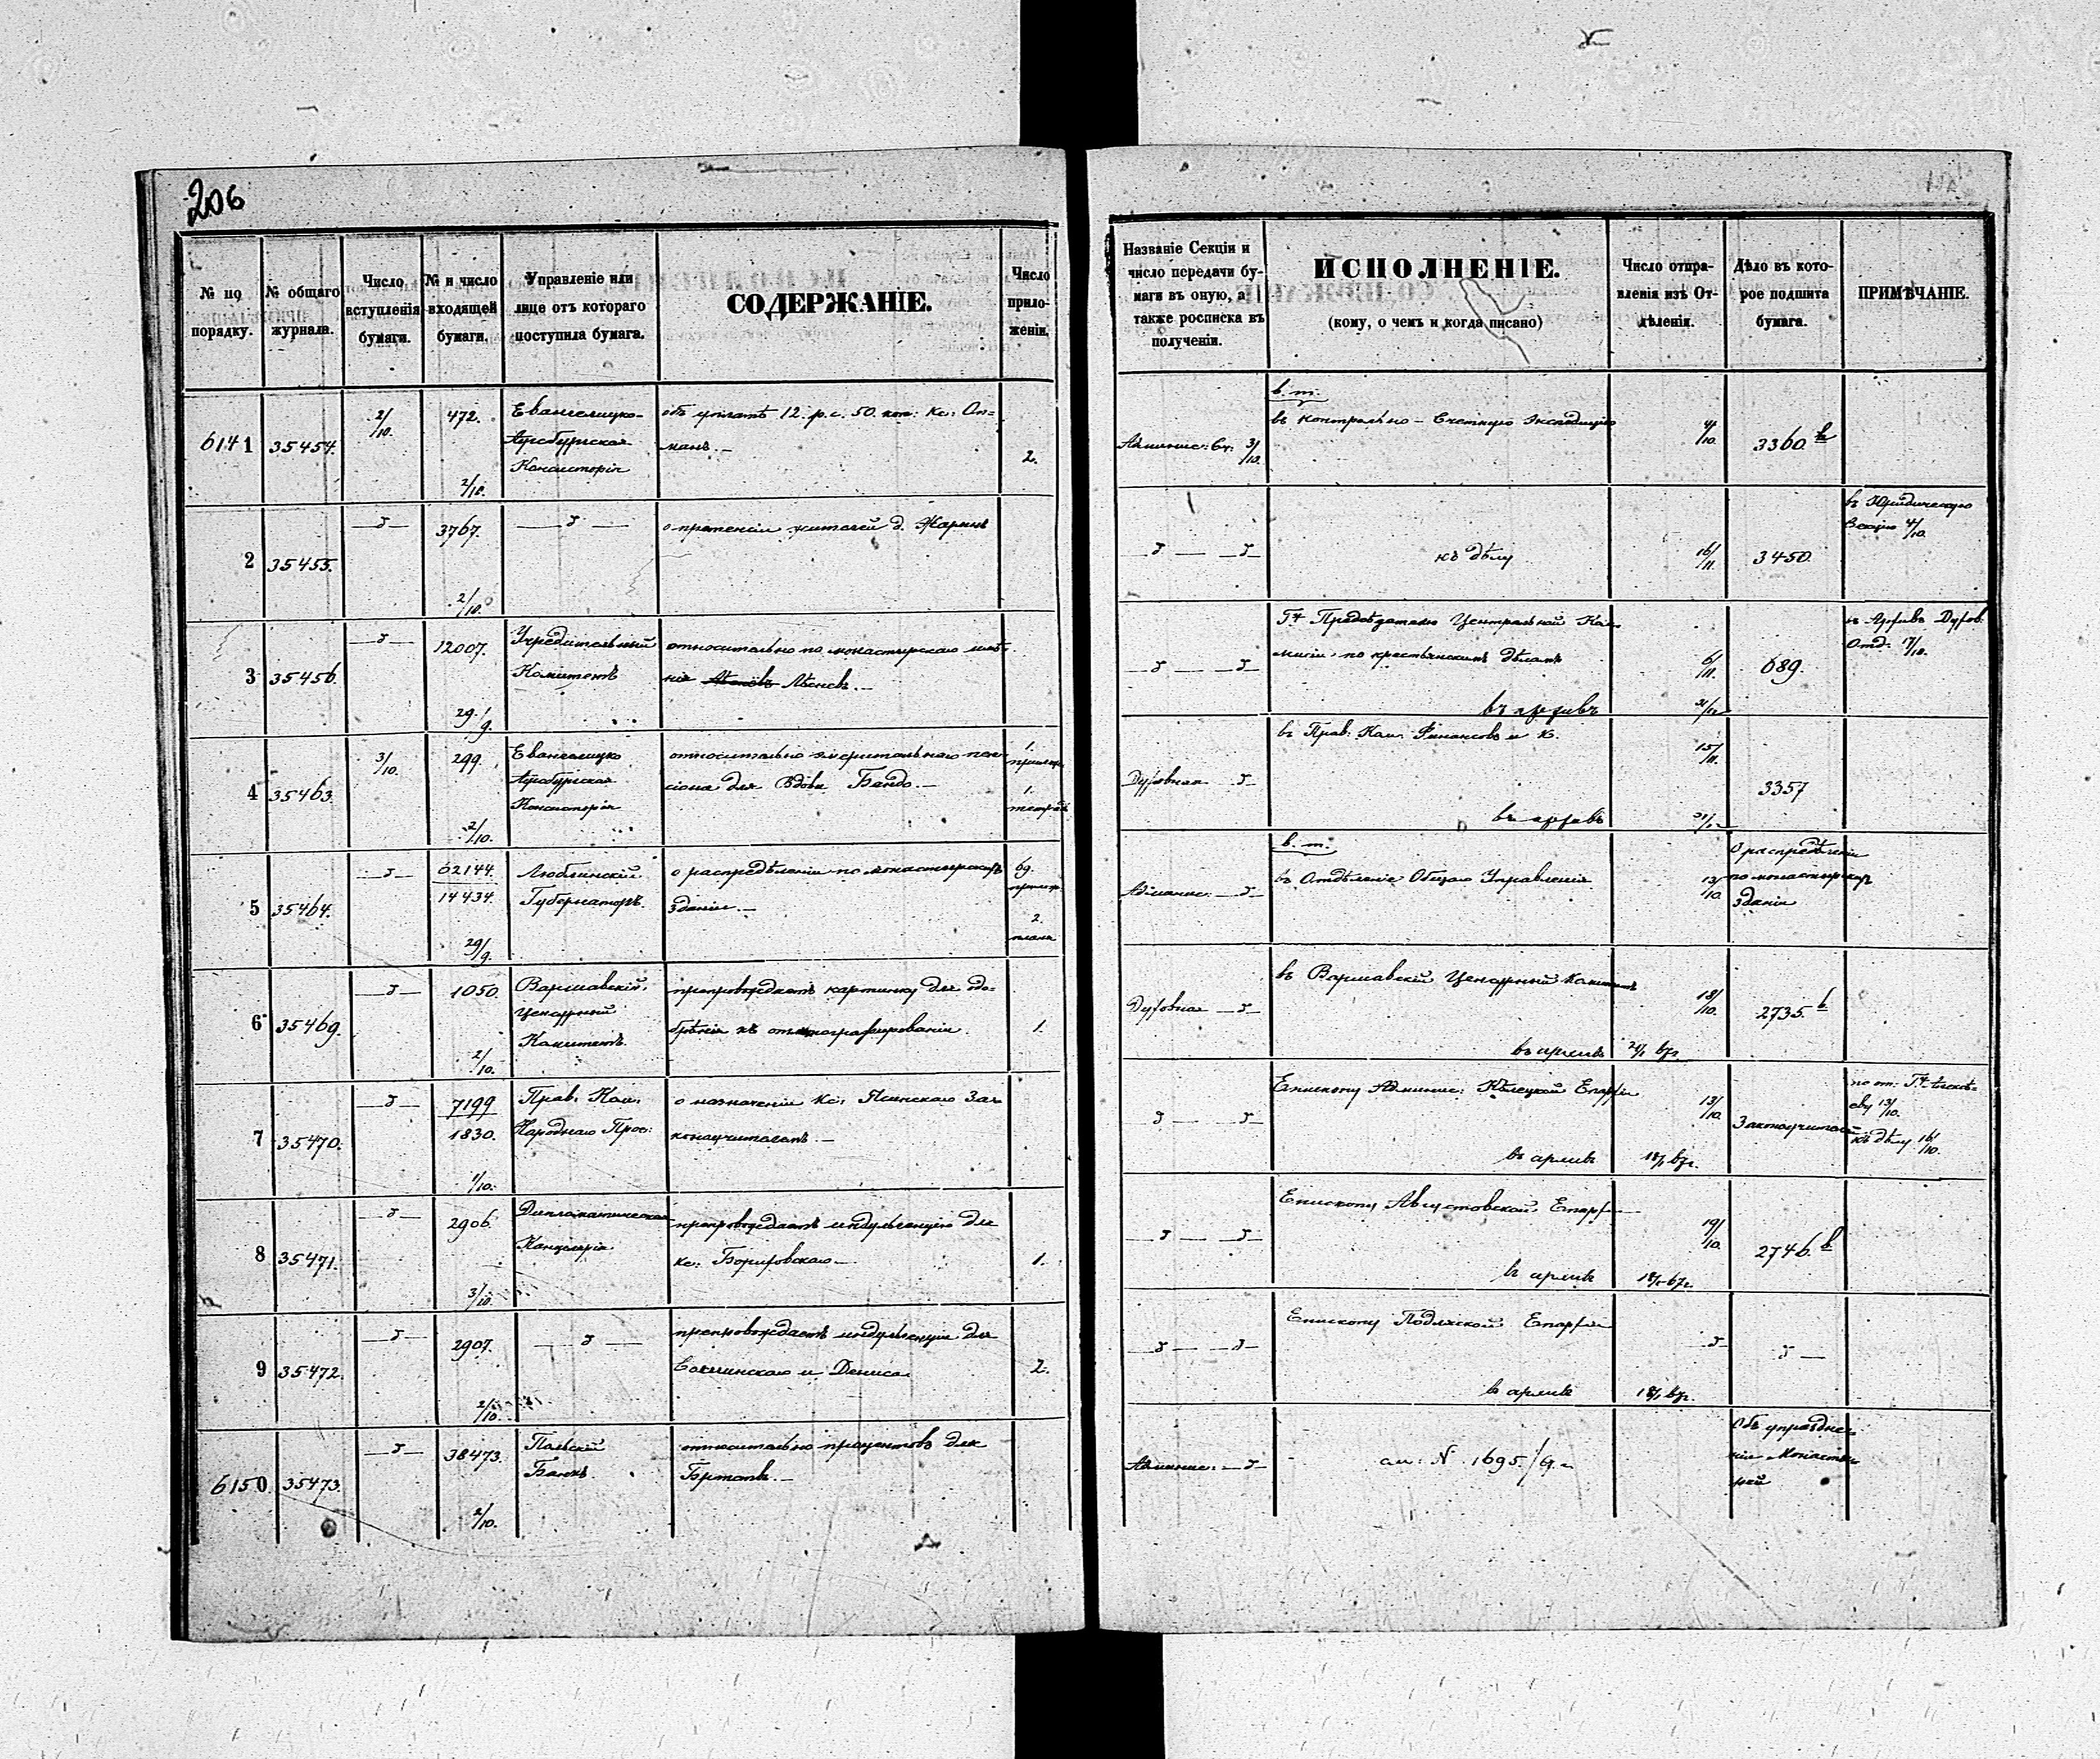 206
№ по порядку.
№ общаго журнала.
Число вступленія бумаги.
№ и число входящей бумаги.
Управленіе или лице отъ котораго поступила бумага.
СОДЕРЖАНІЕ.
Число приложеній.
Названіе Секціи и число передачи бумаги въ оную, а также росписка въ полученіи.
ИСПОЛНЕНІЕ.
(кому, о чемъ и когда писано)
Число отправленія изъ Отдѣленія.
Дѣло въ которое подшита бумага.
ПРИМѢЧАНІЕ.
6141
35454.
2/10.
472.
2/10.
Евангелицко-
Аугсбургская
Консисторія
объ уплатѣ 12. р. с. 50. коп: кс:
2.
3/10.
в. т.
въ Контрольно-Счетную Экспедицію
4/10.
3360
2
35455.
3767.
2/10.
о претензіи жителей д.
къ дѣлу
16/11.
3450.
въ Юридическую
Секцію 4/10.
3
35456
12007.
29/9.
Учредительный
Комитетъ
относительно по монастырскаго имѣ-
нія Лѣсневъ.
Гну Предсѣдателю Центральной Ком-
мисіи по крестьянскимъ дѣламъ
въ архивъ
6/11.
689.
въ Архивъ Духов.
Отд.
4
35463.
3/10.
299.
2/10.
Евангелицко
Аугсбургская
Консисторія
относительно эмеритальнаго пен-
сіона для Вдовы Бандо.
1.
1.
тетрадь
Духовная
въ Прав. Ком. Финансовъ и К.
въ архивъ
15/11.
3357
5
35464.
62144.
14434.
29/9.
Люблинскій
Губернаторъ.
о распредѣленіи по монастырскихъ
зданіи.
69.
2.
плана
в. т.
въ Отдѣленіе Общаго Управленія
13/10.
О распредѣленіи
по монастырскихъ
зданіи
6
35469.
1050.
2/10.
Варшавскій
Цензурный
Комитетъ.
препровождаетъ картинку для одо-
бренія къ
1.
Духовная
въ Варшавскій Цензурный Комитетъ
въ архивъ
18/10.
2735.
7
35470.
7199
1830.
1/10.
Прав. Ком.
Народнаго Прос:
о назначеніи Кс: Ясинскаго За-
коноучителемъ.
Епископу Админис: Кѣлецкой Епархіи
въ архивъ
13/10.
Законоучителей
къ дѣлу 16/10.
8
35471.
2906.
3/10.
Дипломатическая
Канцелярія
препровождаетъ индульгенцію для
кс:
1.
Епископу Августовской Епархіи
въ архивъ
19/10.
2746.
9
35472.
2907.
2/10.
препровождаетъ индульгенціи для
и Дениса
2.
Епископу Подляской Епархіи
въ архивъ
6150.
35473.
38473.
2/10.
Польскій
Банкъ.
относительно процентовъ для
Админис:
см: № 1695.
Объ упраздне-
ніи Монасты-
рей